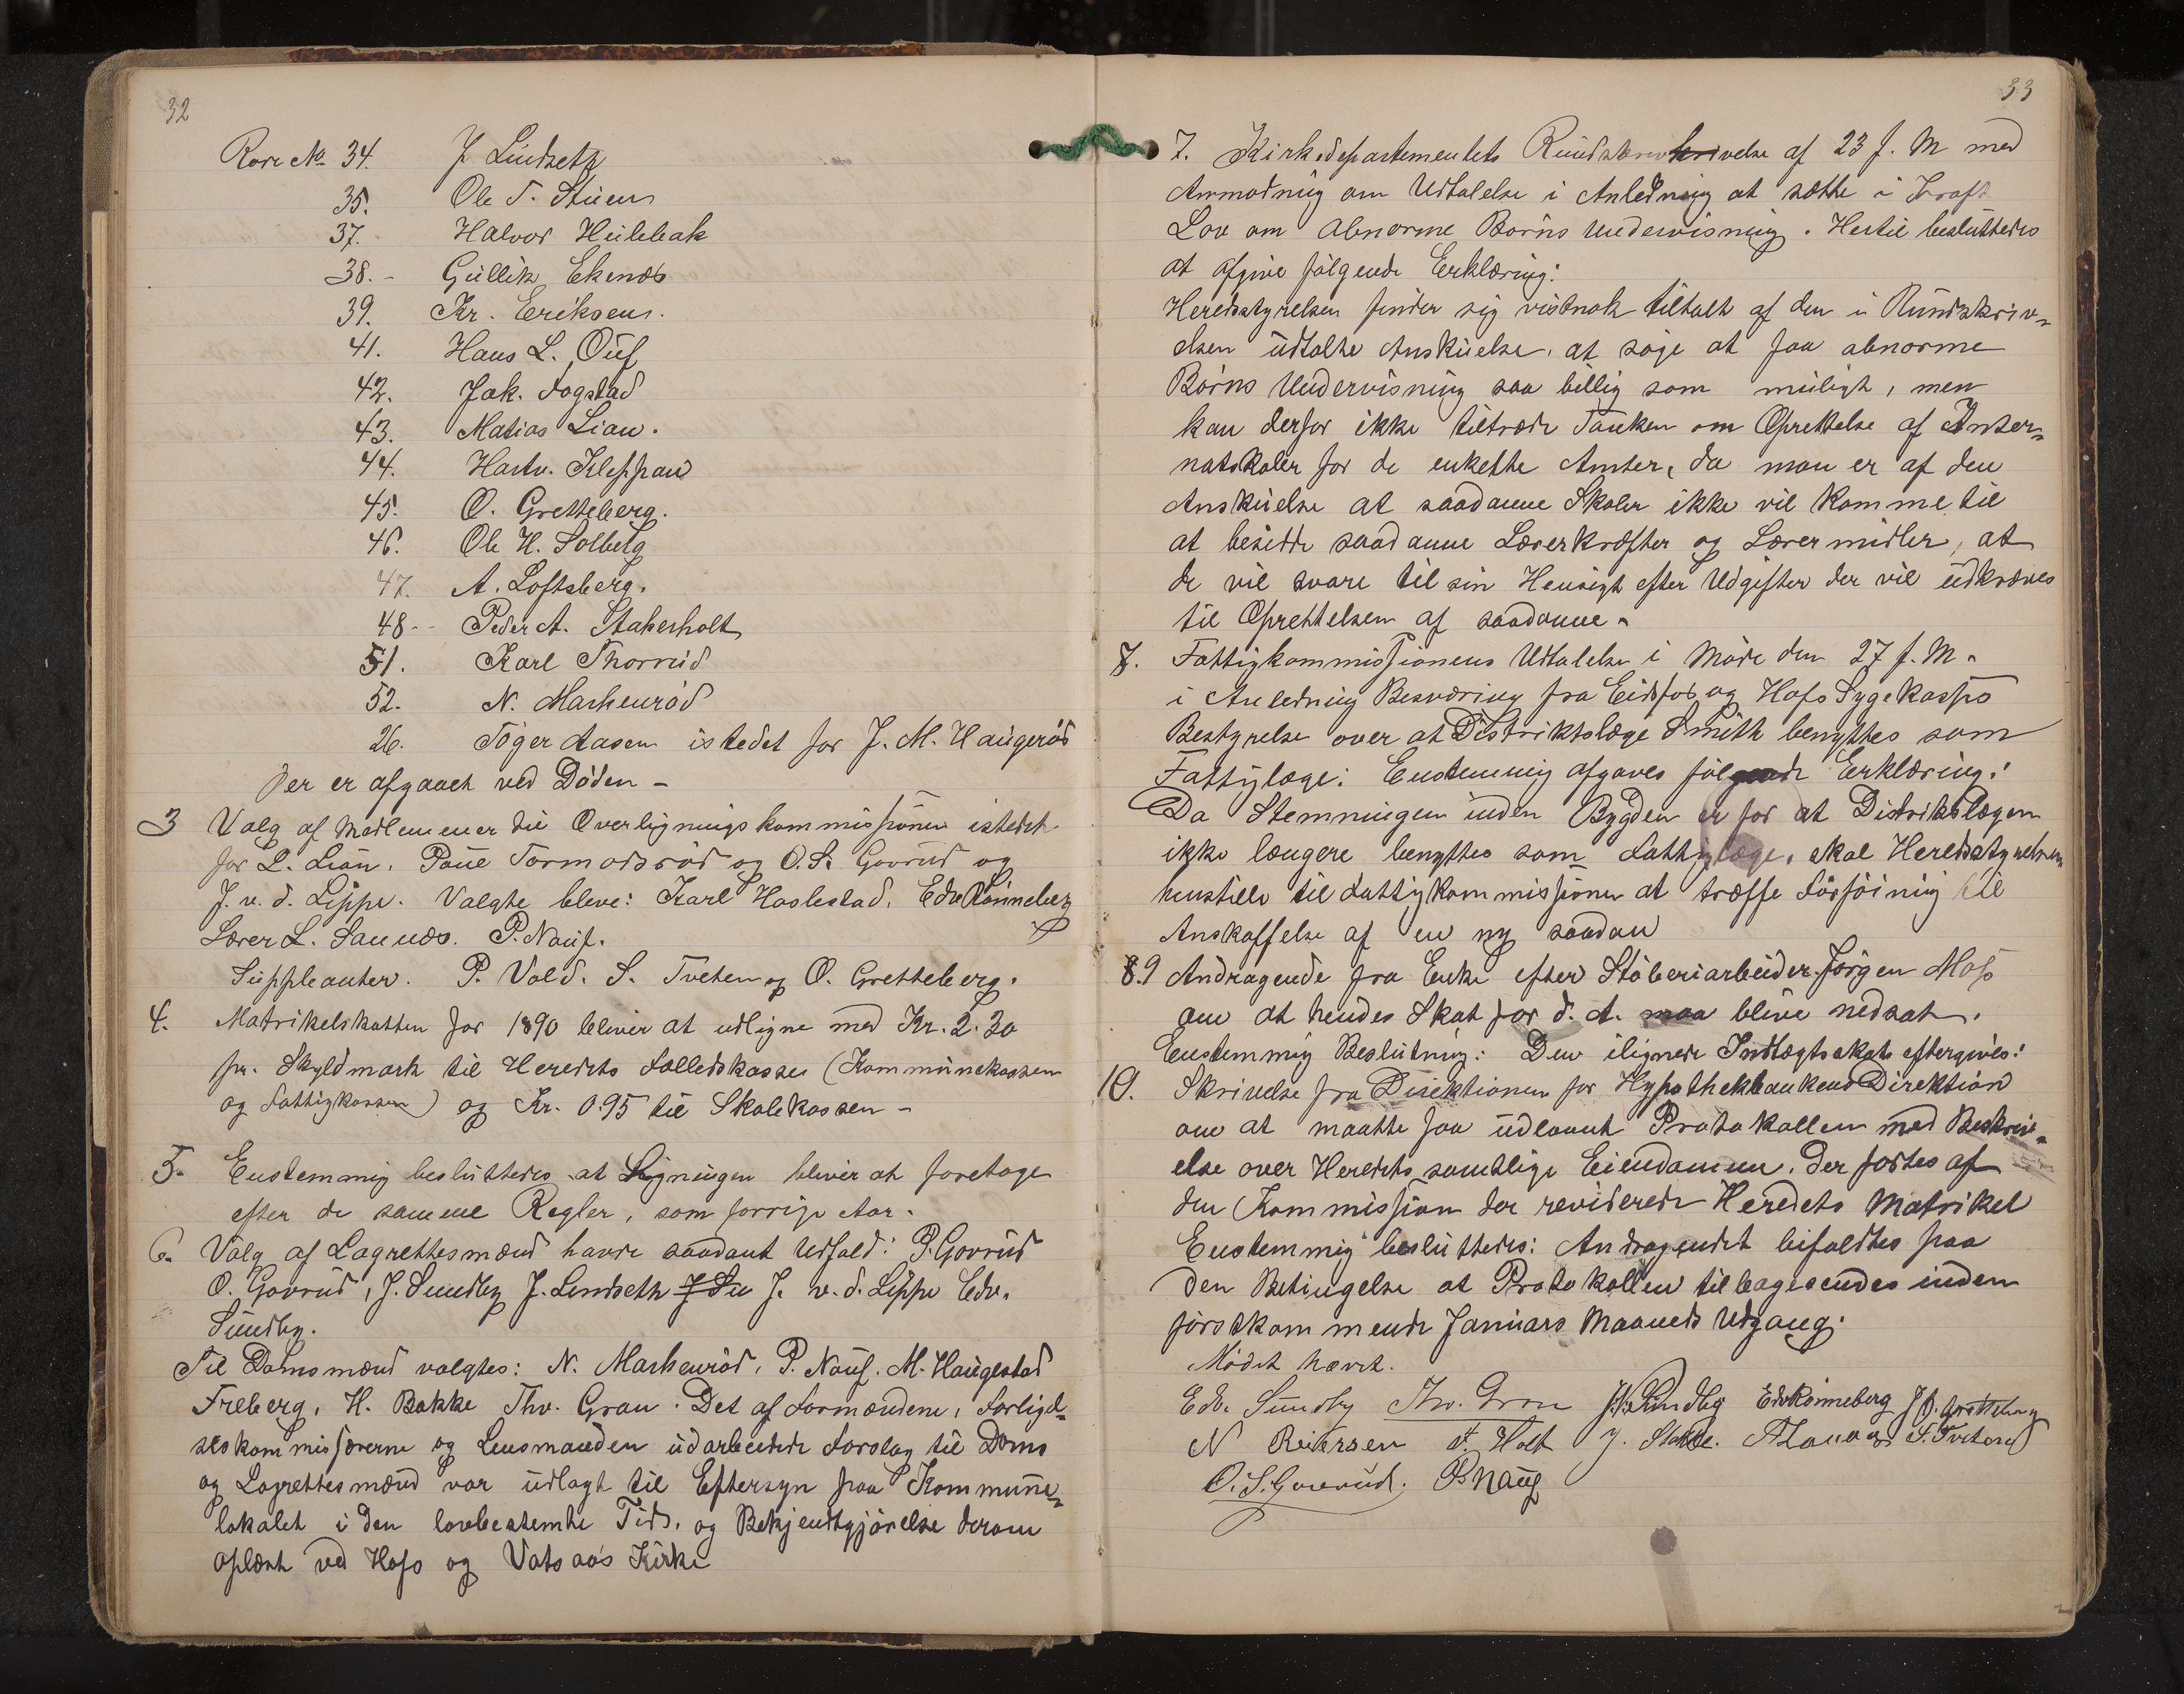 32
Rore No 34. J Lindseth
35. Ole T. Stuen
37. Halvor Heilebak
38. - Gullik Ekenæs
39. Kr. Eriksen.
41. Hans L. Ouf
42. Jak. Fogstad
43. Matias Lian.
44. Hartv. Kleppan
45. O. Gretteberg.
46. Ole H. Solberg
47. A. Loftsberg.
48 -- Peder A. Stakerholt
51. Karl Thorrud
52. N. Markenrød
26. Töger Aasen istedet for J. M. Haugerød
Der er afgaaet ved Døden -
3 Valg af Medlemmer til Overligningskommissionen istedet
for L. Lian, Poul Tormodsrød og O. S. Govrud og
J. v. d. Lippe. Valgte bleve: Karl Haslestad, Edv Rønneberg
Lærer L. Sannæs. P. Nauf.
Suppleanter. P. Vold. S. Tveten og O. Gretteberg.
4. Matrikelskatten for 1890 bliver at udligne med Kr. 2.30
pr. Skyldmark til Heredets Fælledskasse (Kommunekassen
og Fattigkassen) og Kr. 0.95 til Skolekassen -
5. Enstemmig besluttedes at Ligningen bliver at foretage
efter de samme Regler, som forrige Aar.
6. Valg af Lagrettesmænd havde saadant Udfald: P. Govrud
O. Govrud, J. Sundby J. Lindseth J Su J. v. d. Lippe Edv.
Sundby.
Til Domsmænd valgtes: N. Markenrød, P. Nauf. M. Haugestad
Freberg, H. Bakke Thv. Gran. Det af Formændene, Forligel-
seskommissærerne og Lensmanden udarbeidede Forslag til Doms
og Lagrettesmænd var udlagt til Eftersyn paa Kommune-
lokalet i den lovbestemte Tid, og Bekjendtgjørelse derom
oplæst ved Hofs og Vatsaas Kirke
33
7. Kirkedepartementets Rundskrivelse af 23 f. M med
Anmodning om Udtalelse i Anledning at sætte i Kraft
Lov om abnorme Børns Undervisning. Hertil besluttedes
at afgive følgende Erklæring:
Heredsstyrelsen finder sig vistnok tiltalt af den i Rundskriv-
elsen udtalte Anskuelse, at søge at faa abnorme
Børns Undervisning saa billig som muligt, men
kan derfor ikke tiltræde Tanken om Oprettelse af Inter-
natskoler for de enkelte Amter, da man er af den
Anskuelse at saadanne Skoler ikke vil komme til
at besidde saadanne Lærerkræfter og Lærermidler, at
de vil svare til sin Hensigt efter Udgifter der vil udkræves
til Oprettelsen af saadanne.
8. Fattigkommissionens Udtalelse i Møde den 27 f. M.
i Anledning Besværing fra Eidsfos og Hofs Sygekasses
Bestyrelse over at Distriktslæge Smith benyttes som
Fattiglæge; Enstemmig afgaves følgende Erklæring:
Da Stemningen inden Bygden er for at Distriktslægen
ikke længere benyttes som Fattiglæge, skal Heredsstyrelsen
henstille til Fattigkommissionen at træffe Forføining til
Anskaffelse af en ny saadan
8.9 Andragende fra Enke efter Støberiarbeider Jørgen Moss
om at hendes Skat for d. A. maa blive nedsat.
Enstemmig Beslutning: Den ilignede Indtægtsskat eftergives.
10. Skrivelse fra Direktionen for Hypothekbankens Direktion
om at maatte faa udlaant Protokollen med Beskriv-
else over Heredets samtlige Eiendomme, der førtes af
den Kommission der reviderede Heredets Matrikel
Enstemmig besluttedes: Andragendet bifaldtes paa
den Betingelse at Protokollen tilbagesendes inden
førstkommende Januars Maaneds Udgang.
Mødet hævet.
Edv. Sundby Thv. Gran J. Sundby Edv Rønneberg O. Gretteberg
N Reiersen F. Holt J. S. Tveten
O. S. Govrud. P. Naug